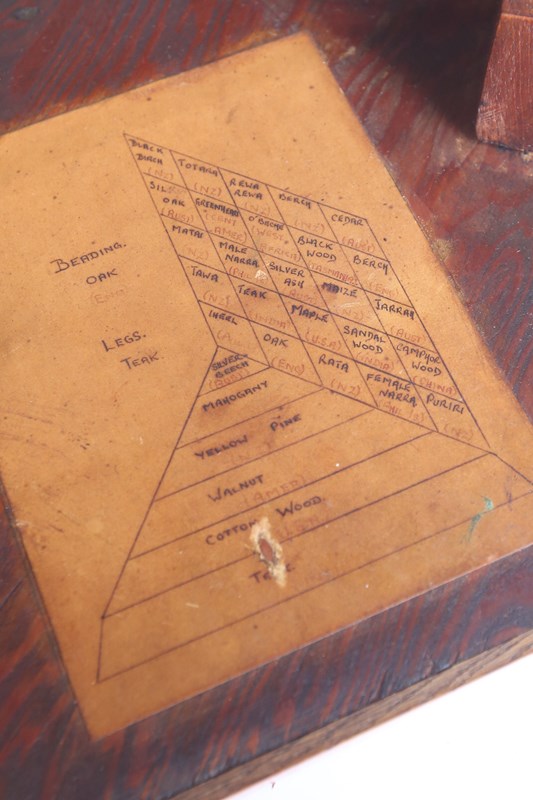 BEADING.
OAK
LEGS.
TEAK.
BLACK
BIRCH
(NZ)
TOTARA
(NZ)
REWA
REWA
BERCH
CEDAR
(AUST)
SIL
OAK
(AUST)
GREENHEART
AMER)
O'BACHE
BLACK
WOOD
(TASMANIA)
BERCH
(ENG)
MATAI
(NZ)
MALE
NARRA
SILVER
ASH
MAIZE
JARRAH
(AUST)
TAWA
(NZ)
TEAK
(INDIA)
MAPLE
(USA)
SANDAL
WOOD
(INDIA)
CAMPHOR
WOOD
(CHINA)
OAK
(ENG)
RATA
(NZ)
FEMALE
NARRA
PURIRI
(NZ)
SILVER
BEECH
MAHOGANY
YELLOW PINE
WALNUT
(AMER)
COTTON WOOD.